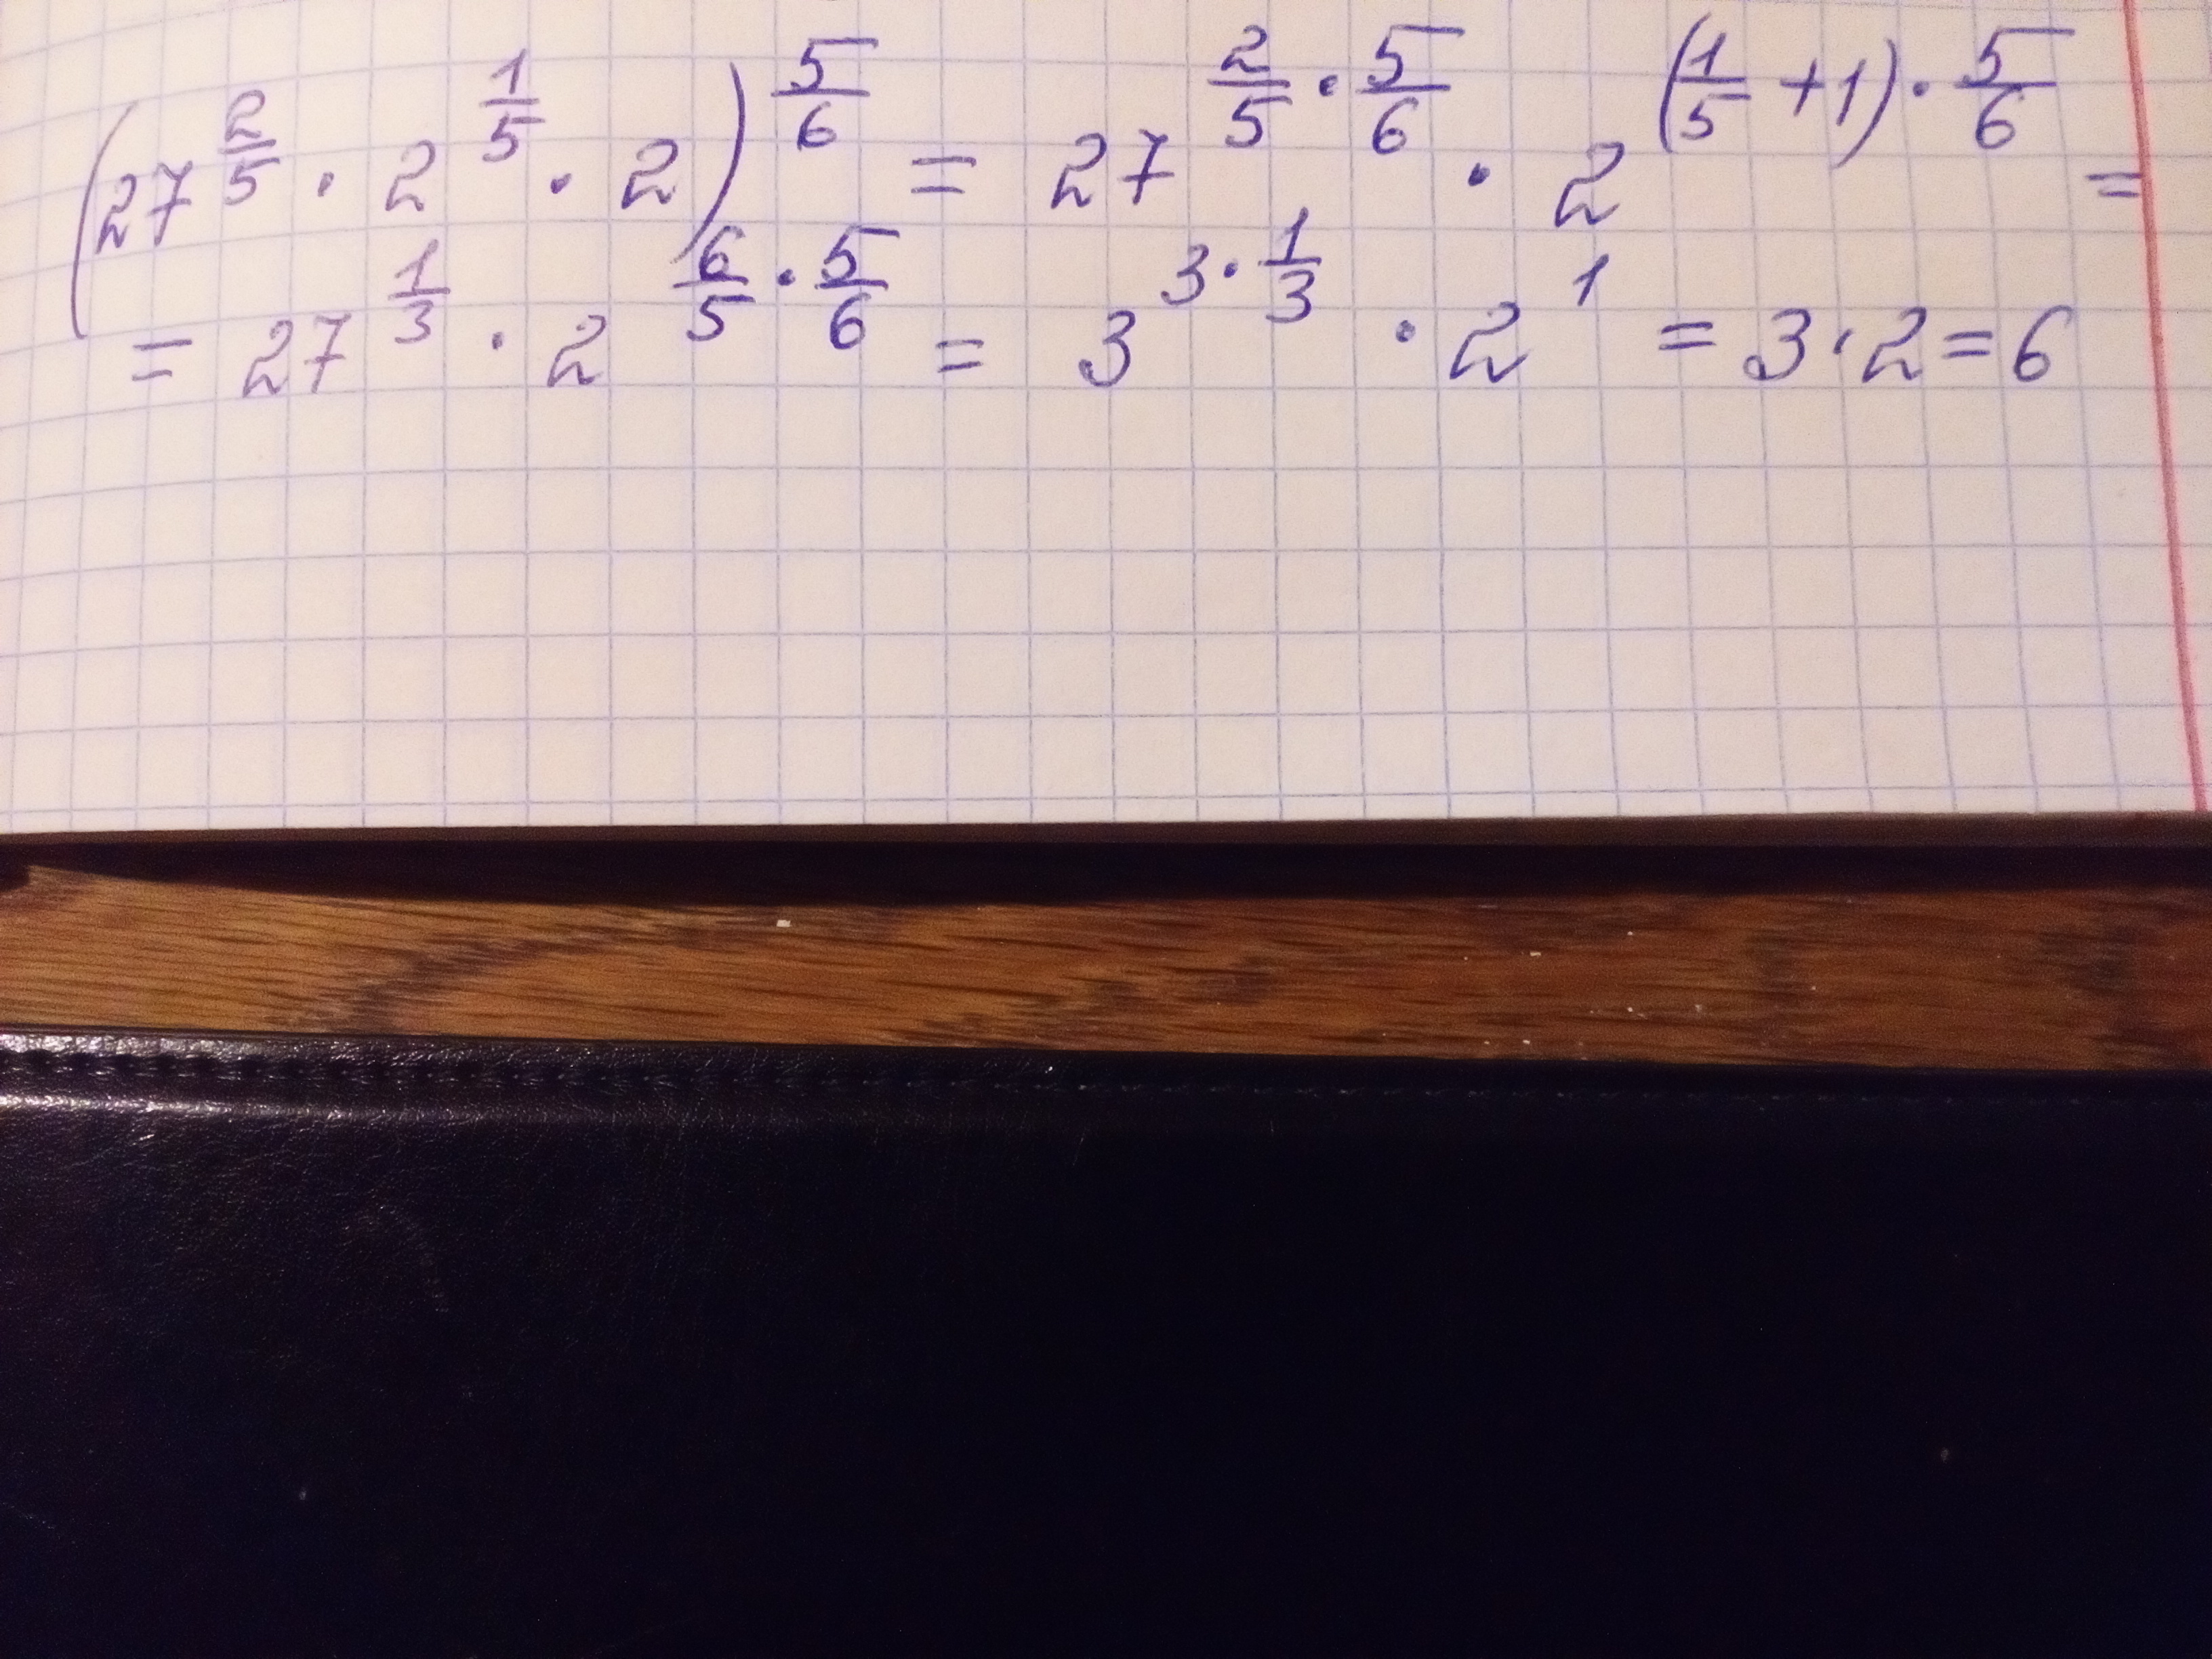 (27^{2/5} · 2^{1/5} · 2)^{5/6} = 27^{2/5 · 5/6} · 2^{(1/5 + 1) · 5/6} =
= 27^{1/3} · 2^{6/5 · 5/6} = 3^{3 · 1/3} · 2^1 = 3 · 2 = 6